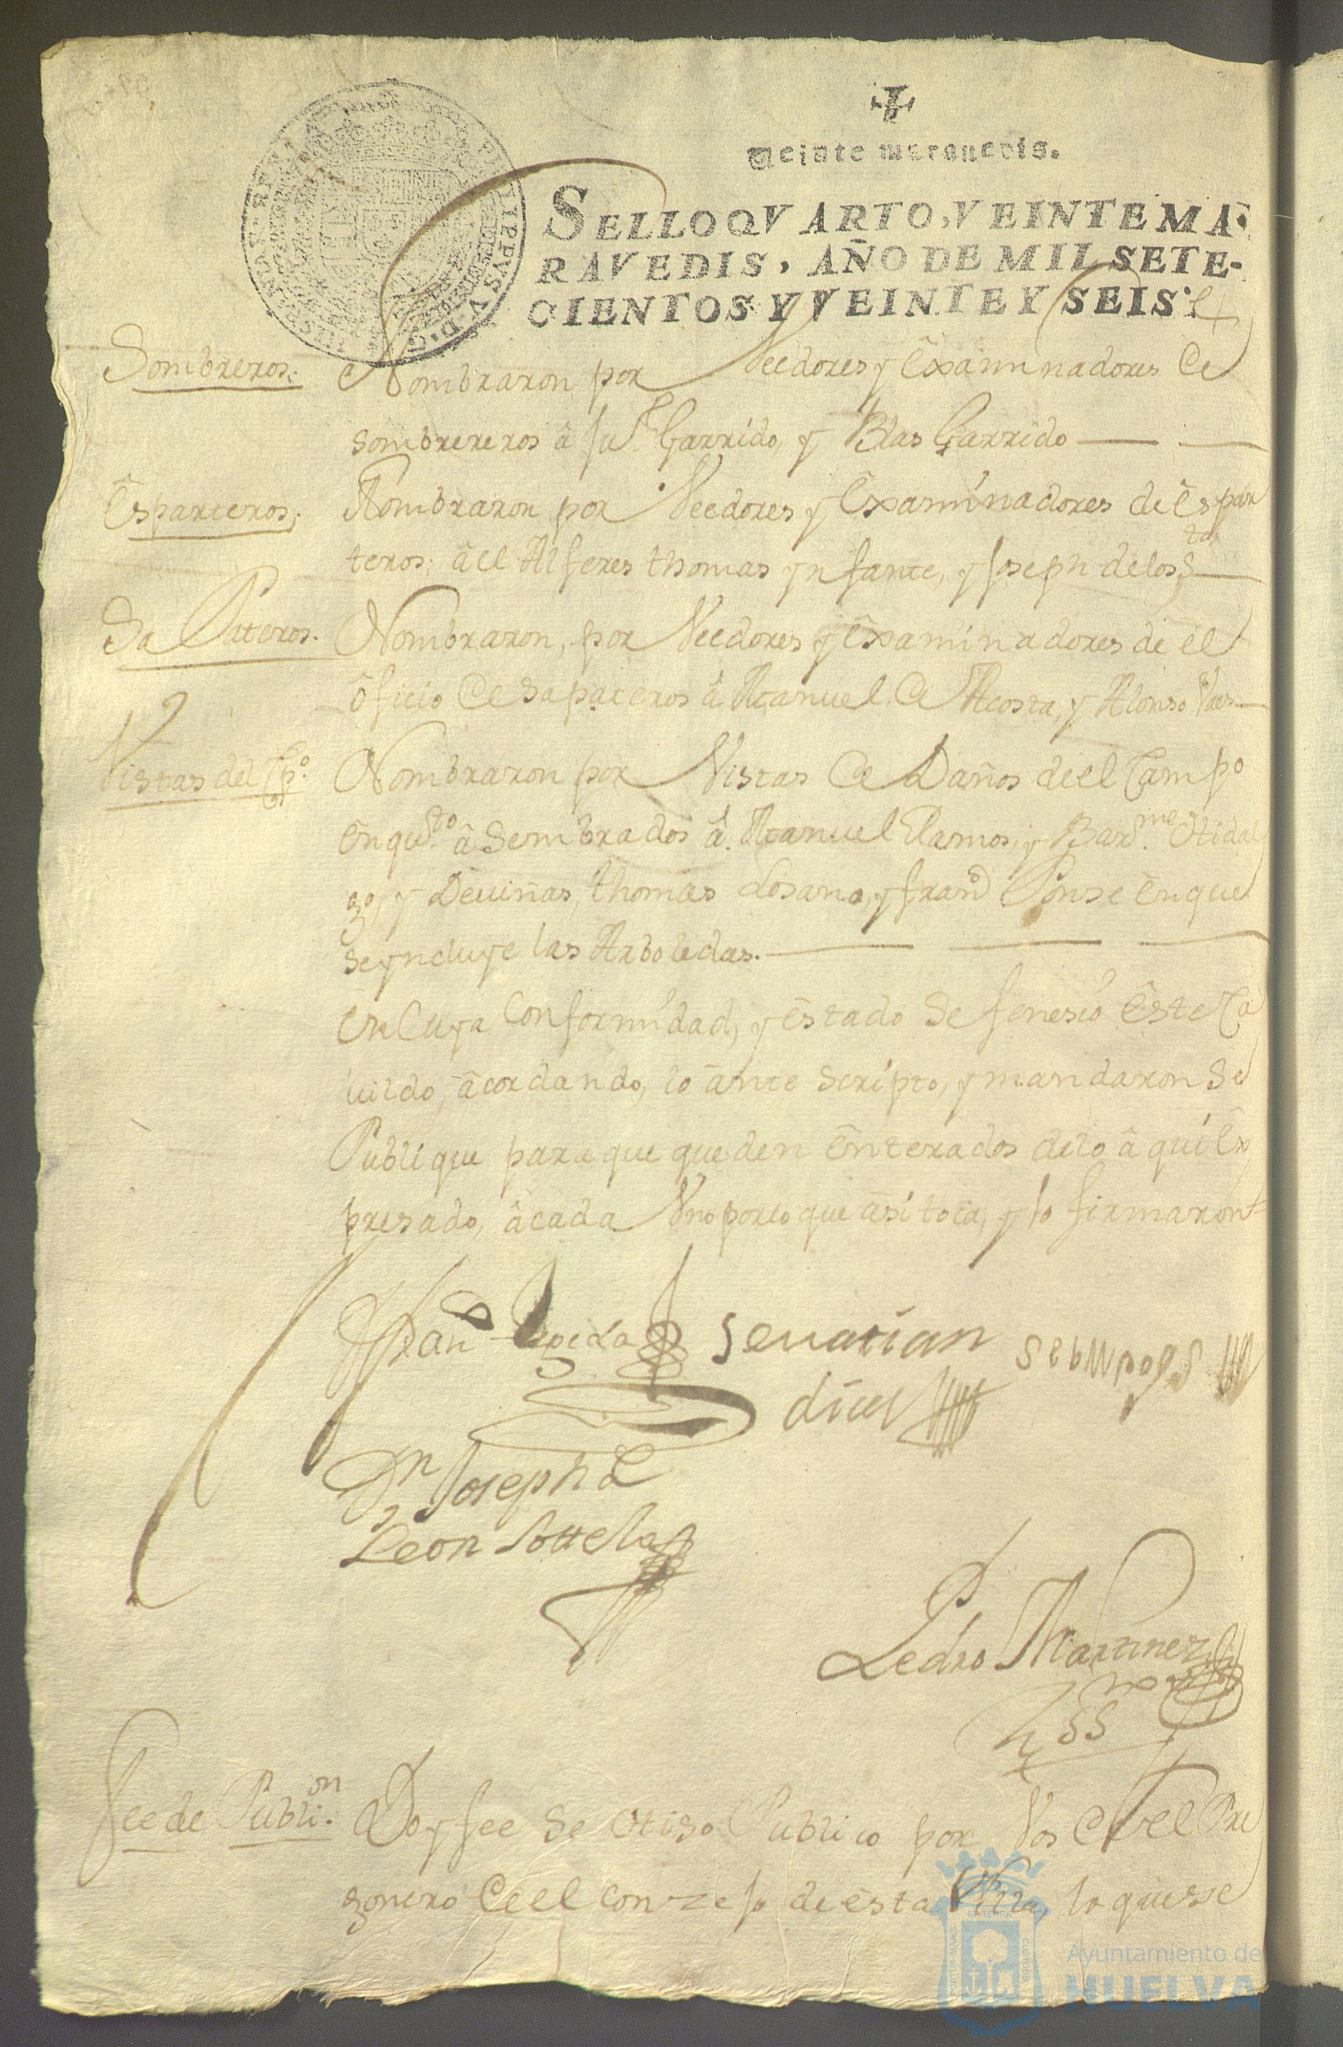 Veinte maravedis.
SELLO QVARTO, VEINTE MA-
RAVEDIS, AÑO DE MIL SETE-
CIENTOS Y VEINTE Y SEIS.
Sombreros. Nombraron por Veedores y Examinadores de
sombrereros â Jun Garrido, y Blas Garrido
Êsparteros; Nombraron por Veedores y Examinadores de Espar
teros, âel Alferes thomas ynfante, y Joseph delos Stos
SaPateros. Nombraron, por Veedores y Examinadores de el
ôficio de sapateros â Manuel de Acosta, y Alonso Vaes
Vistas del Cpo. Nombraron por Vistas de Daños de el Campo
en quto â Sembrados â Manuel Ramos, y Barme Hidal
go, y Deviñas, thomas Losano, y franco Ponse en que
se yncluye las Arboledas.
En Cuya Conformidad, y êstado Se fenesio Este Ca
vildo, âcordando, lo ânte Scripto, y mandaron Se
Publique para que queden Enterados delo â qui Ex
presado, â cada Vno por lo que âsi toca, y lo firmaron
Fran Zepeda Sevatian
dies
Dn Joseph de
Leon Sottelo
Pedro Martinez
SS
Fee de Publion. Doy fee Se hiso Publico por Vos de el Pre
gonero de el conzejo de êsta Villa, lo que se
Ayuntamiento de
HUELVA